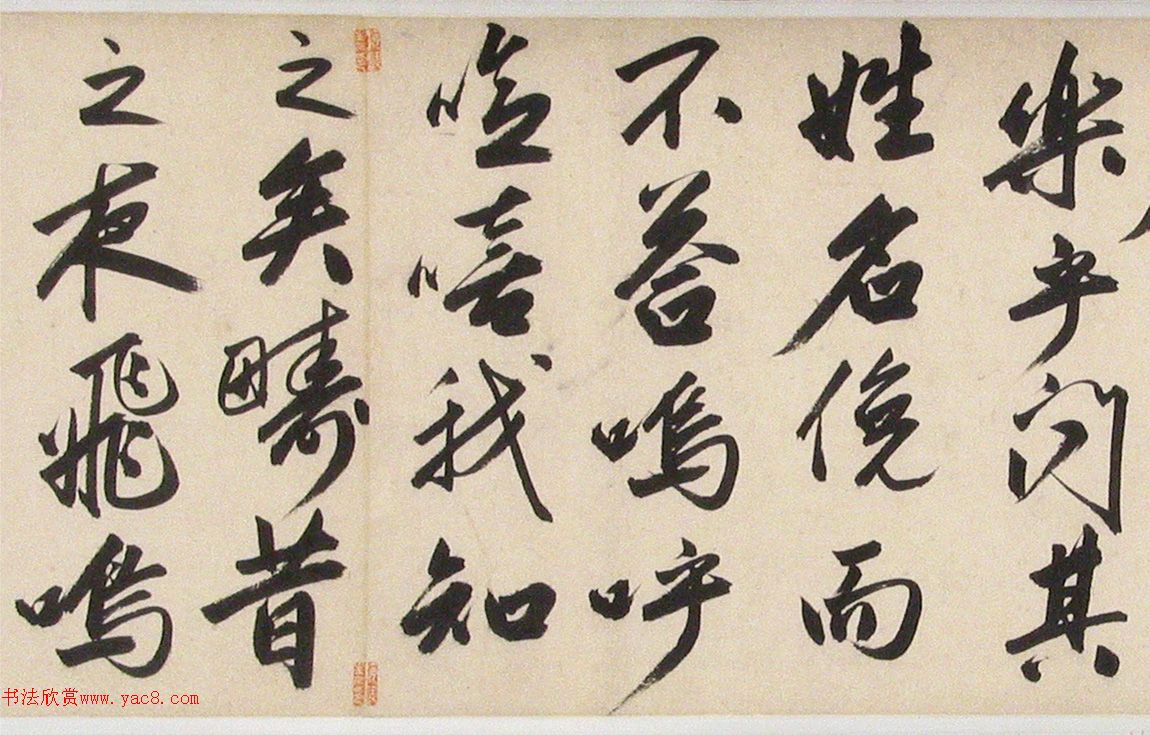 樂乎問其
姓名俛而
不荅嗚呼
噫嘻我知
之矣疇昔
之夜飛鳴
书法欣赏www.yac8.com